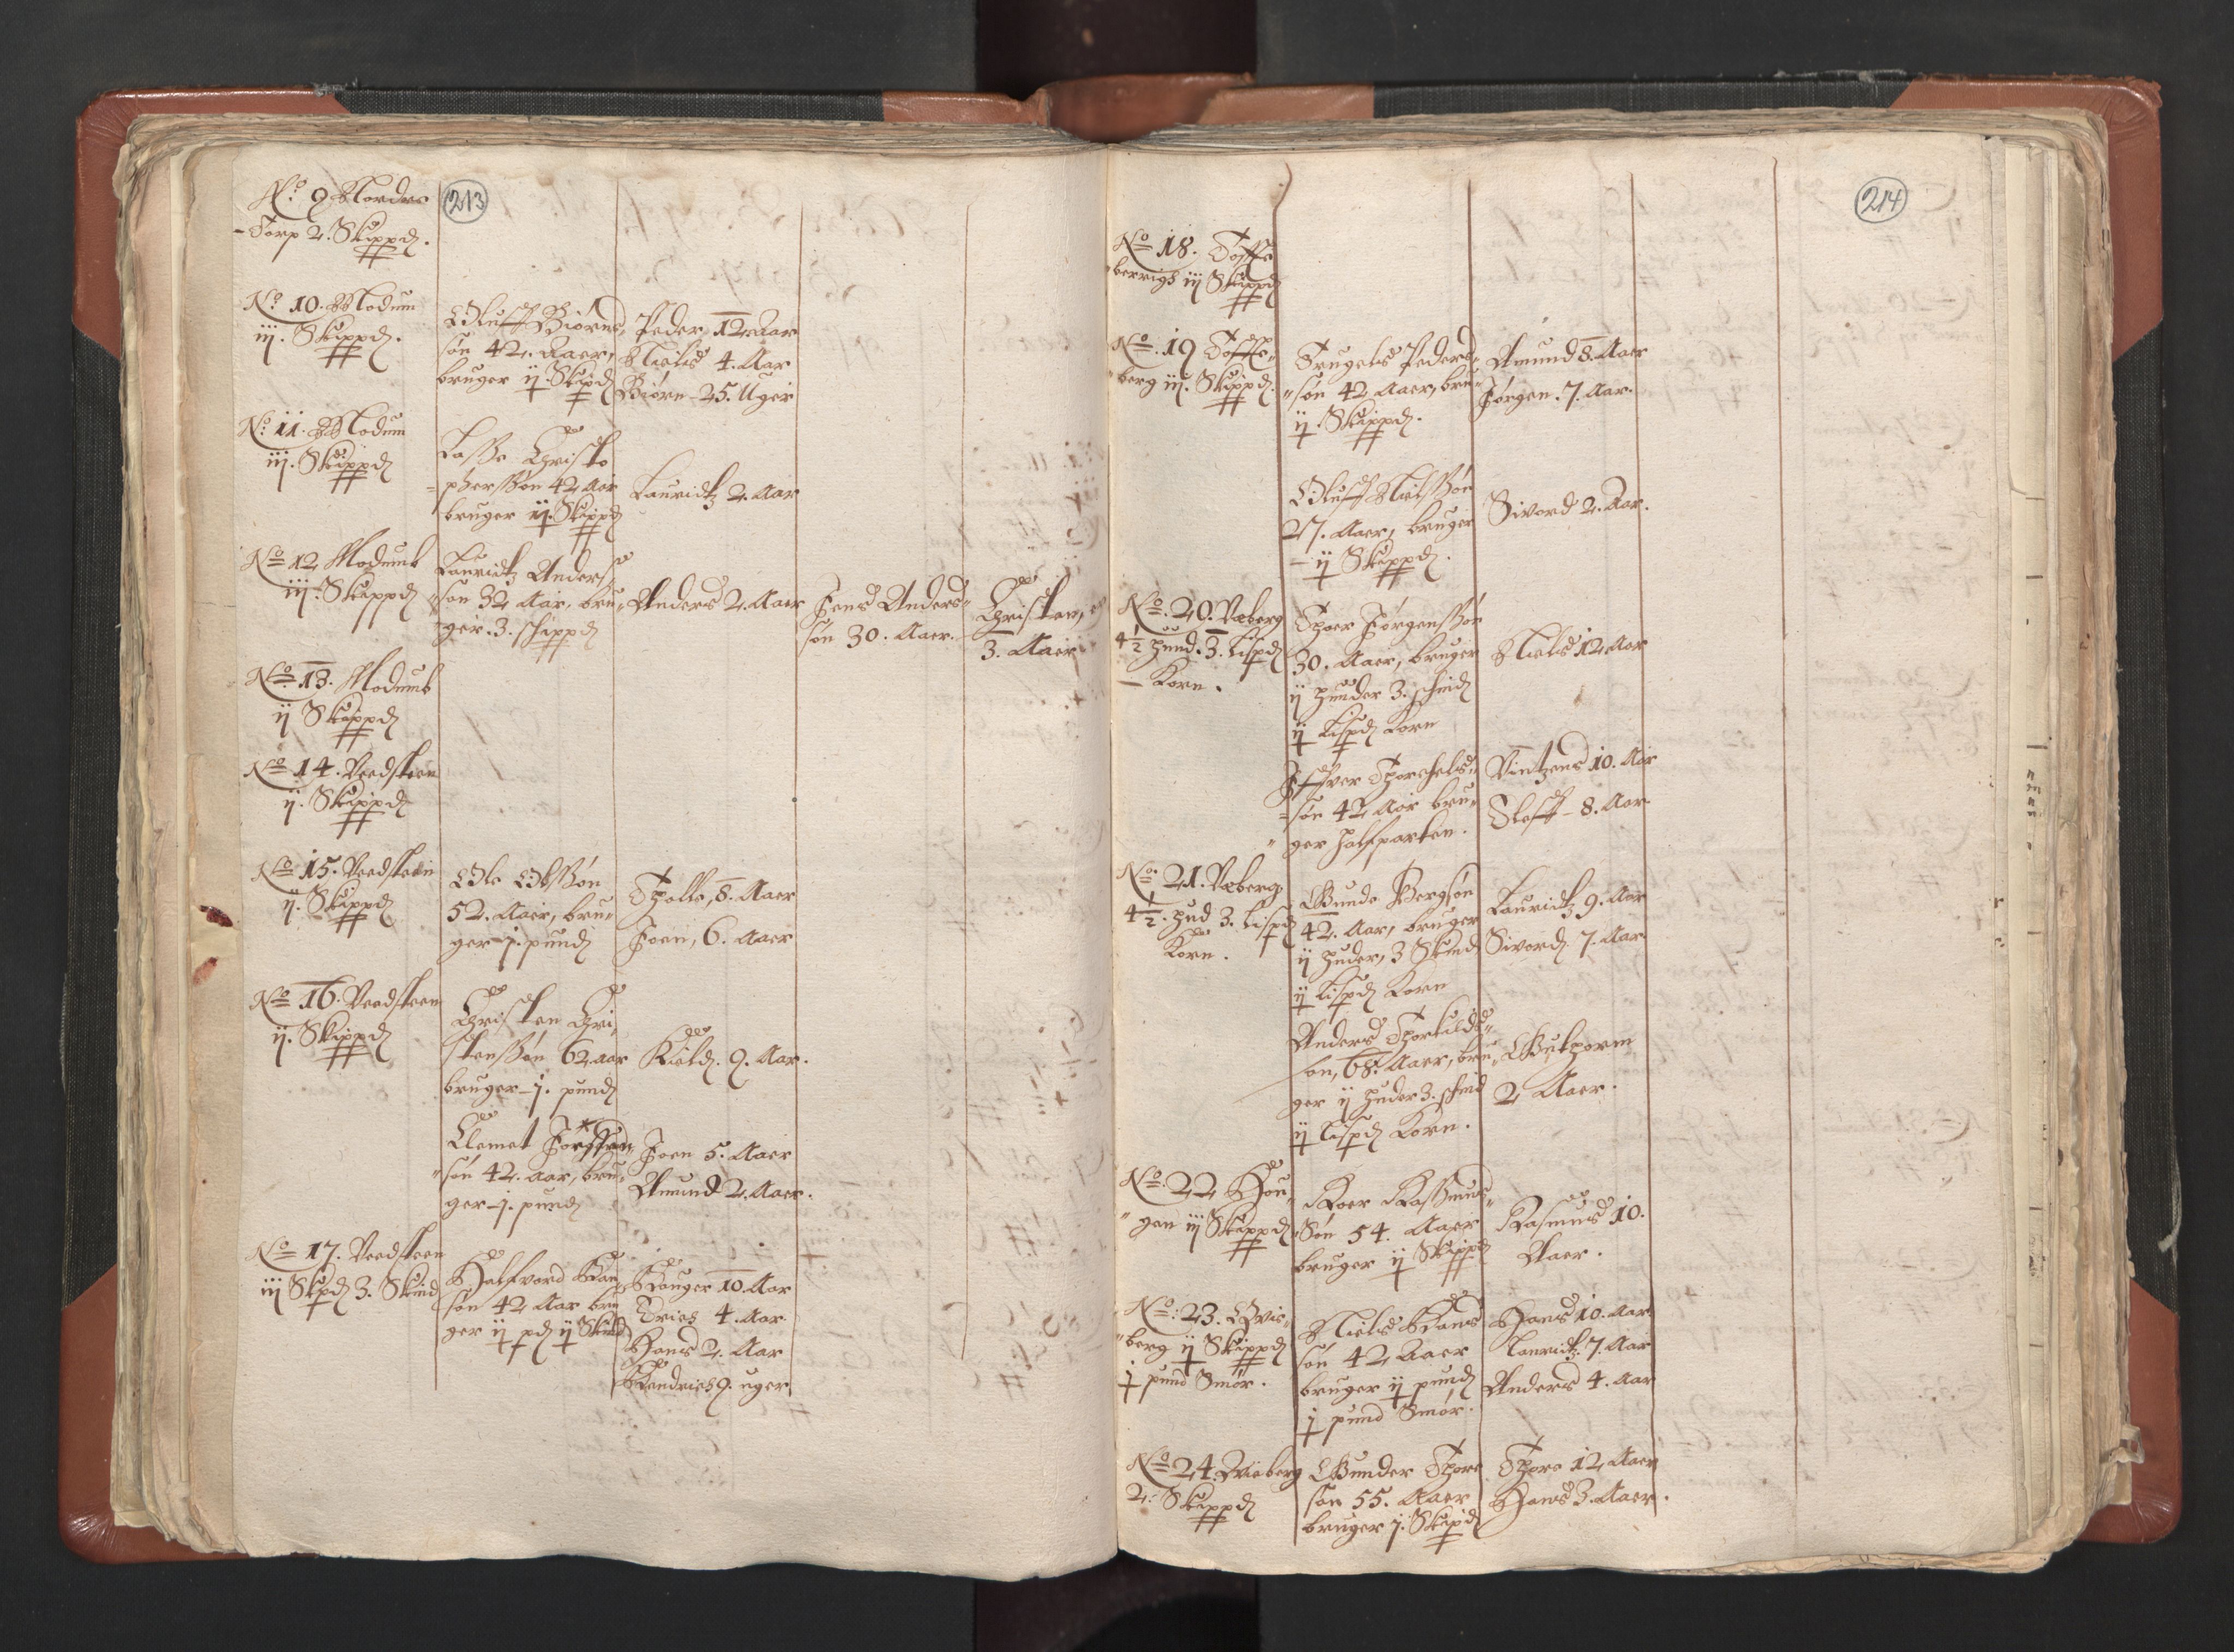 213
No 9 Nordre
Torp 2. Skippd.
No 10. Modum
iij. Skippd.
Oluff Biørns
søn 42. Aaer,
bruger ij. Skipd
Peder, 12 Aar
Niels 4. Aar
Biørn 25. Uger
No 11. Modum
iij. Skippd
Lasse Christo
pherssøn 42 Aar
bruger ij. Skippd
Lauridtz 2. Aar
No 12 Modumb
iij. Skippd
Lauridtz Anders
søn 32 Aar, bru
ger. 3. schippd
Anders 2. Aaer
Jens Anders
søn 30. Aaer.
Christen,
3. Aaer
No 13. Modumb
ij Skippd
No 14. Veedsteen
ij. Skippd
No 15. Veedsteen
ij. Skippd
Ole Olssøn
52. Aaer, bru
ger j. pund
Tholle, 8. Aaer
Joen, 6. Aaer
No 16. Veedsteen
ij. Skippd
Christen Chri
stenssøn 62 aar
bruger j. pund
Kield. 9. Aar.
Clemet
søn 42. aar, bru
ger j. pund
Joen 5. Aaer
Amund 2. Aaer.
No 17. Veedsteen
iij Skpd 3. Skind
Halfvord
søn 42 Aar bru
ger ij pd ij Skind
10. Aar
4. Aar
Hans 2. Aar
Hendrich 9. uger
214
No 18. Toffte
berrigh iij Skippd
No. 19 Toffte
berg iij. Skippd.
Trugels Peders
søn 42 Aaer, bru
ij. Skippd.
Amund 8. Aaer
Jørgen. 7. Aar.
Oluff Nielssøn
27. Aaer, bruger
ij Skippd.
Sivord 2. Aar.
No. 20. Væberg
4½ hund. 3. Lispd
Korn.
Thoer Jørgenssøn
30. Aaer, bruger
ij huder 3. schind
ij Lispd Korn
Niels 12 Aar
Iffver Thorchels
søn 42 Aar bru
ger halfparten.
Vintzens 10. Aar
Oloff 8. Aar.
No. 21. Væberg
4½. hud 3. Lispd
Korn.
Gunde Bergsøn
42. Aar, bruger
ij huder, 3 Skind
ij Lispd Korn
Lauridtz 9. Aar
Sivord. 7. Aar
Anders Thorkilds
søn, 68. Aaer, bru
ger ij huder 3. schind
ij Lispd Korn.
Guthorm
2 Aaer.
No. 22
gen iij Skippd
Roer Rassmus
Søn 54. Aaer
bruger ij Skippd
Rasmus 10.
Aaer.
No: 23. Qvis
berg ij Skippd
j pund Smør.
Niels Hans
søn 42 Aaer
bruger ij pund
j pund Smør.
Hans 10. Aar
Lauridtz 7. Aar
Anders 4. Aar
No 24. Qvieberg
2. Skippd
Gunder Thore
søn 55. Aaer
bruger j. Skipd
Thore 12 Aaer
Hans 3. Aaer.